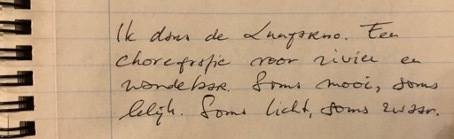 Ik dans de Lungarno. Een
choreografie voor rivier en
wandelaar. Soms mooi, soms
lelijk. Soms licht, soms zwaar.